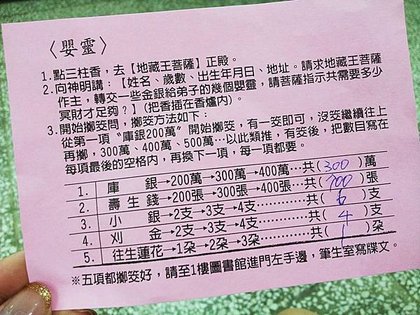 〈嬰靈〉
1.點三柱香，去【地藏王菩薩】正殿。
2.向神明講：【姓名、歲數、出生年月日、地址。請求地藏王菩薩
作主，轉交一些金銀給弟子的幾個嬰靈，請菩薩指示共需要多少
冥財才足夠？】(把香插在香爐內)。
3.開始擲筊問，擲筊方法如下：
從第一項〝庫銀200萬〞開始擲筊，有一筊即可，沒筊繼續往上
再擲，300萬、400萬、500萬…以此類推，有筊後，把數目寫在
每項最後的空格內，再換下一項，每一項都要。
1. 庫 銀→200萬→300萬→400萬……共(300)萬
2. 壽生錢→200張→300張→400張……共(700)張
3. 小 銀→2支→3支→4支……共(6)支
4. 刈 金→2支→3支→4支……共(4)支
5. 往生蓮花→1朵→2朵→3朵……共(1)朵
※五項都擲筊好，請至1樓圖書館進門左手邊，筆生室寫牒文。